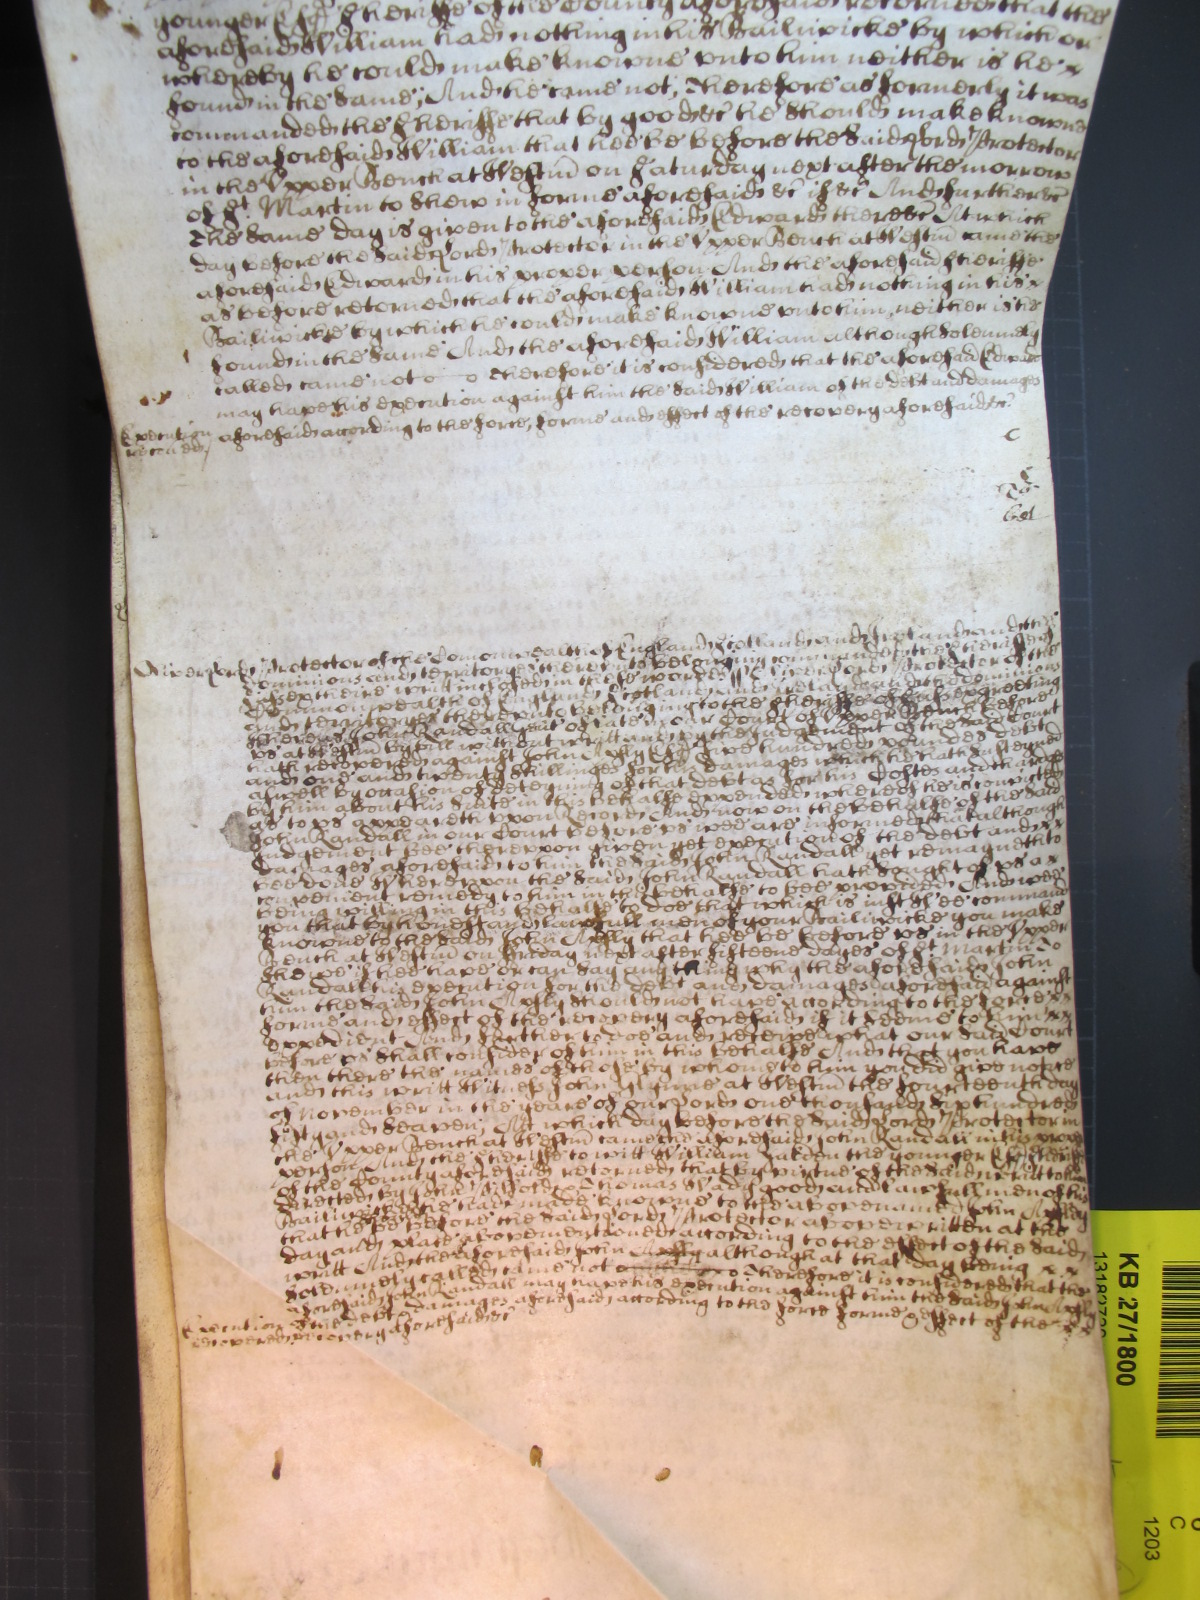 younger Esqr Sheriffe of the County aforesaid retorned that the
aforesaid William had nothing in his Bailiwicke by which or
whereby he could make knowne unto him neither is he
found in the same; And he came not, Therefore as formerly it was
commanded the Sheriffe that by good &c he should make knowne
to the aforesaid William that hee be before the said Lord Protector
in the Upper Bench at Westm on Saturday next after the morrow
of St. Martin to shew in forme aforesaid &c if &c And further &c
The same day is given to the aforesaid Edward there &c At which
day before the said Lord Protector in the Upper Bench at Westm came the
aforesaid Edward in his proper person And the aforesaid Sheriffe
as before retorned that the aforesaid William had nothing in his
Bailiwicke by which he could make knowne unto him, neither is he
found in the same And the aforesaid William although solemnely
called came not Therefore it is considered that the aforesaid Edward
may have his execution against him the said William of the debt and damages
Execution aforesaid according to the force, forme and effect of the recovery aforesaid &c
Oliver Lord Protector of the Comonwealth of England Scotland and Ireland and the
dominions and territoryes thereunto belonging commanded the Sheriffe of
theire writt inclosed in these words Oliver Lord Protector of the
Commonwealth of England Scotland and Ireland and the dominions
and territoryes thereunto belonging to the Sheriffe of greeting
Whereas John Randall gent of late in our Court of Upper Bench before
us at Westm by bill without writt and by the judgement of the said Court
hath recovered against John Esqr five hundred poundes debt
and one and twenty shillinges for his damages which he hath susteyned
aswell by occasion of deteyning of that debt as for his Costes and charges
by him about his suite in this behalfe expended whereof he is convicted
as to us appeareth upon Record And now on the behalfe of the said
John Randall in our Court before us wee are informed that although
Judgement bee thereupon given yet execution of the debt and
damages aforesaid to him the said John Randall yet remayneth to
bee done Whereupon the said John Randall hath sought of us a
convenient remedy to him in this behalfe to bee provided And wee
being willing in this behalfe to doe that which is just Wee command
you that by honest and lawfull men of your Bailiwicke you make
knowne to the said John that hee be before us in the Upper
Bench at Westm on Fryday next after fifteene dayes of St Martin To
shewe if hee have or can say any thing why the aforesaid John
Randall his execution for the debt and damages aforesaid against
him the said John should not have according to the force
forme and effect of the recovery aforesaid if it seeme to him
expedient And further to doe and receive what our said Court
before us shall consider of him in this behalfe And that you have
then there the names of those by whome to him you did give notice
and this writt Witnes John Glynne at Westm the fourteenth day
of November in the yeare of our Lord one thousand six hundred
fifty and seaven; At which day before the said Lord Protector in
the Upper Bench at Westm came the aforesaid John Randall in his proper
person And the Sheriffe to witt William the younger Esqr Sheriffe
of the County aforesaid retorned that by virtue of the said writt to him
directed by John and Thomas good and lawfull men of his
Bailiwicke he had made knowne to the abovenamed John
that he bee before the said Lord Protector abovewritten at the
day and place abovementioned according to the effect of the said
writt And the aforesaid John although at that day being
solemnely called came not Therefore it is considered that the
aforesaid John Randall may have his execution against him the said John
Execution of the debt & damages aforesaid according to the force forme & effect of the
recovery aforesaid &c
KB 27/1800
1203
C